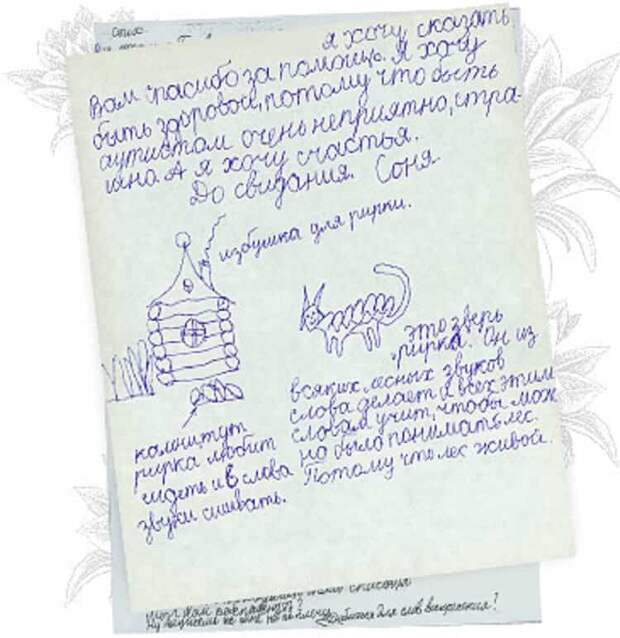 Стих
Я хочу сказать
Вам спасибо за помощь. Я хочу
быть здоровой, потому что быть
аутистом очень неприятно, стра-
шно. А я хочу счастья.
До свидания. Соня
избушка для рирки.
это зверь
рирка. Он из
всяких лесных звуков
слова делает и всех этим
словам учит, чтобы мож
но было понимать лес.
Потому что лес живой.
камни, тут
рирка любит
сидеть и в слова
звуки сшивать.
для слов воскресения?